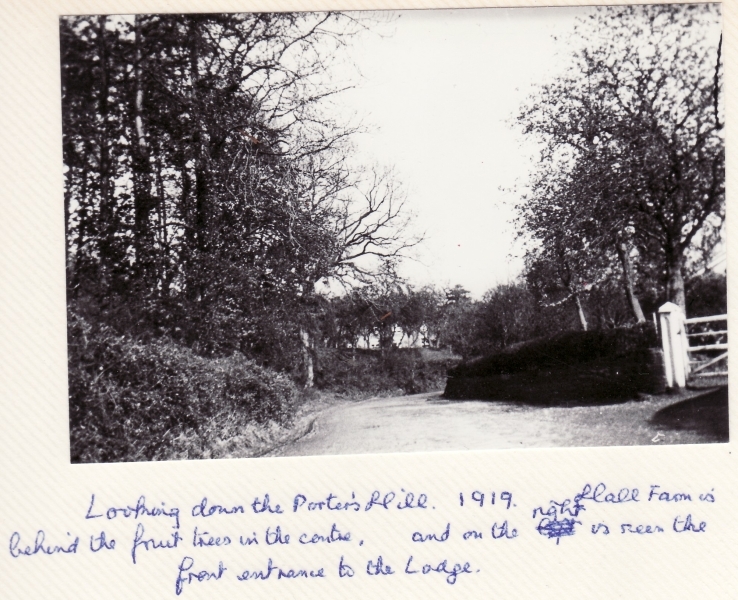 Looking down the Porter's Hill. 1919. Hall Farm is
behind the fruit trees in the centre, and on the right is seen the
front entrance to the Lodge.